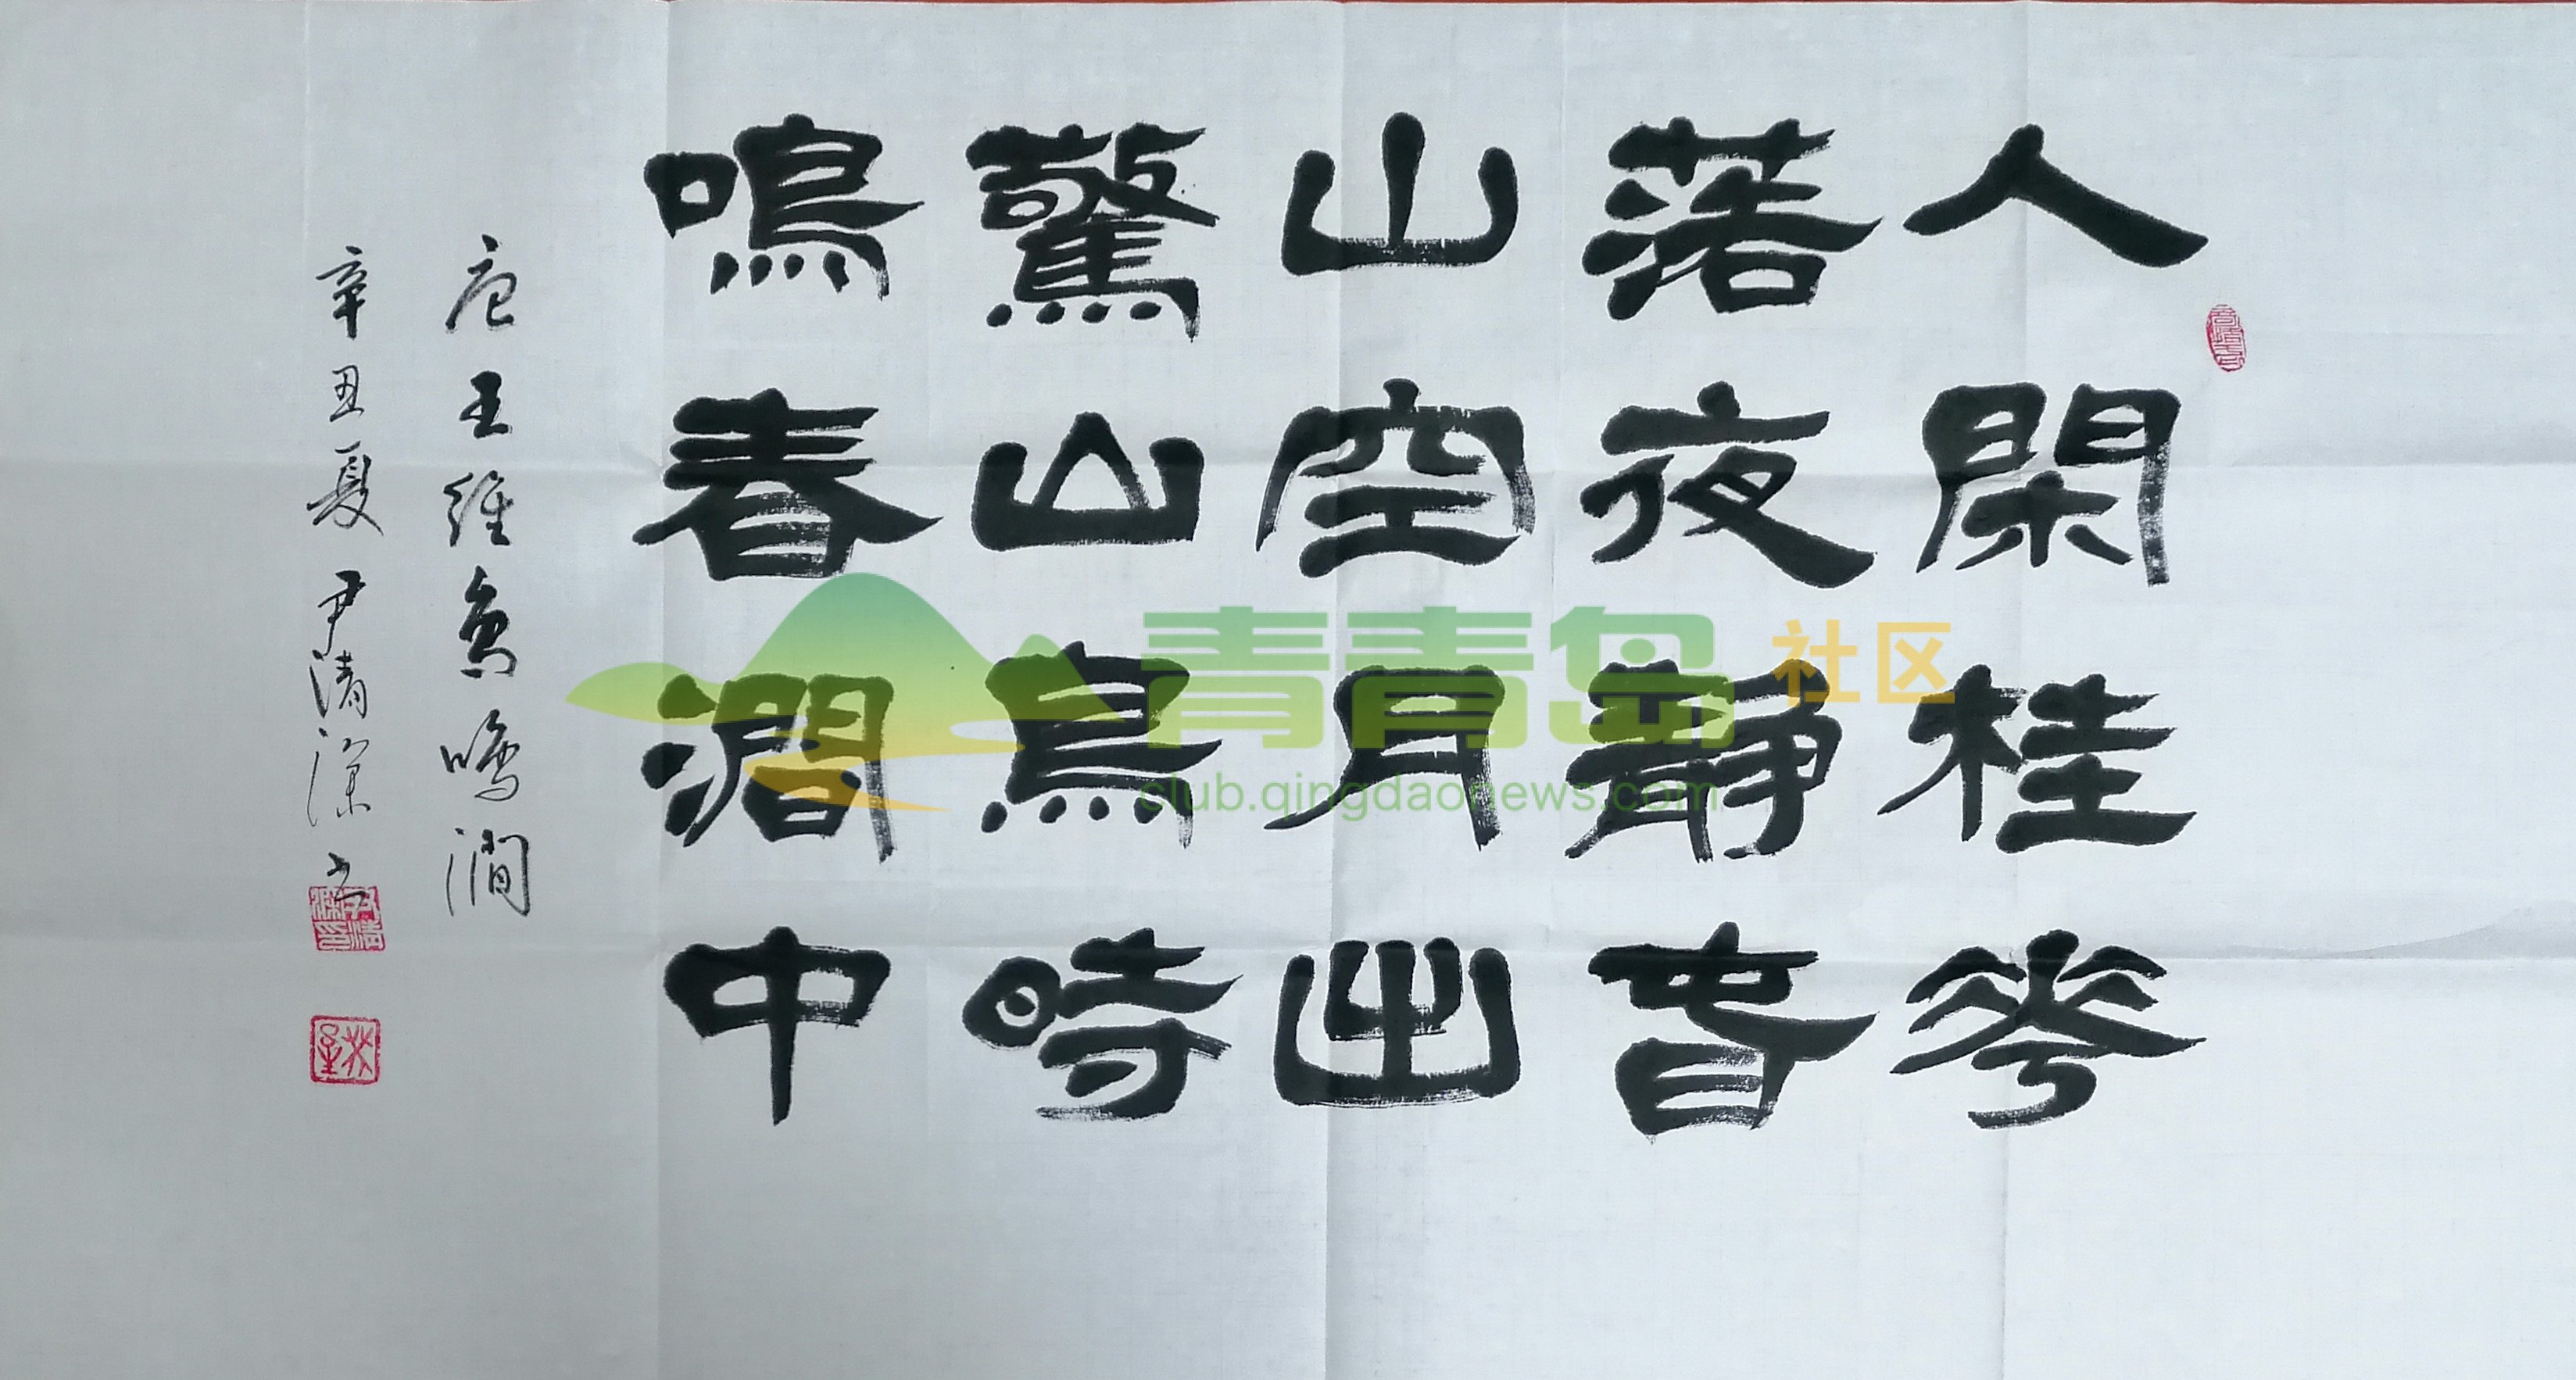 人閑桂花
落夜靜春
山空月出
驚山鳥時
鳴春澗中
唐王維鳥鳴澗
辛丑夏尹清深书
青青岛社区
club.qingdaonews.com